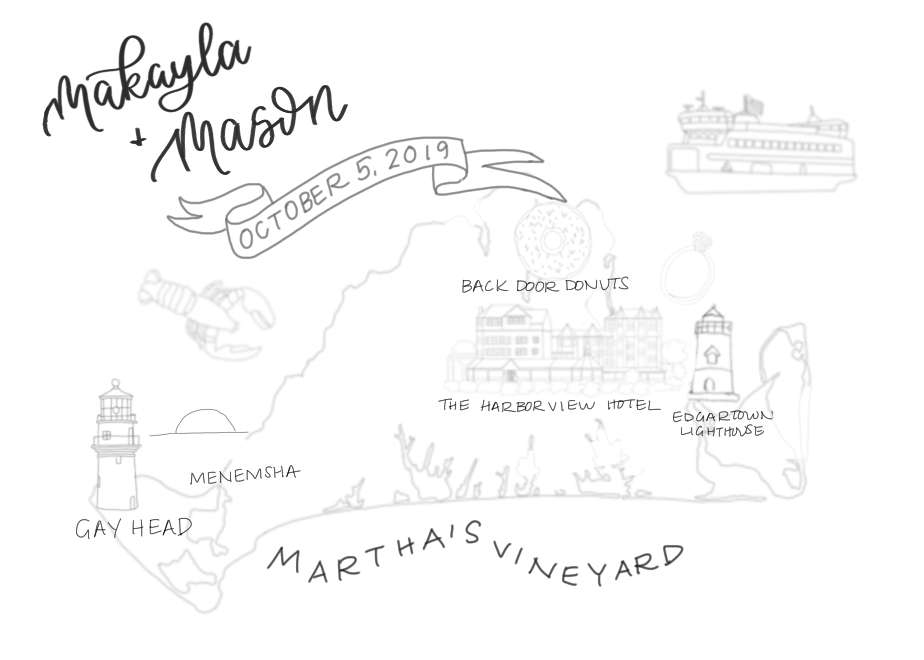 Makayla
+ Mason
OCTOBER 5, 2019
BACK DOOR DONUTS
THE HARBORVIEW HOTEL
EDGARTOWN
LIGHTHOUSE
MENEMSHA
GAY HEAD
MARTHA'S VINEYARD